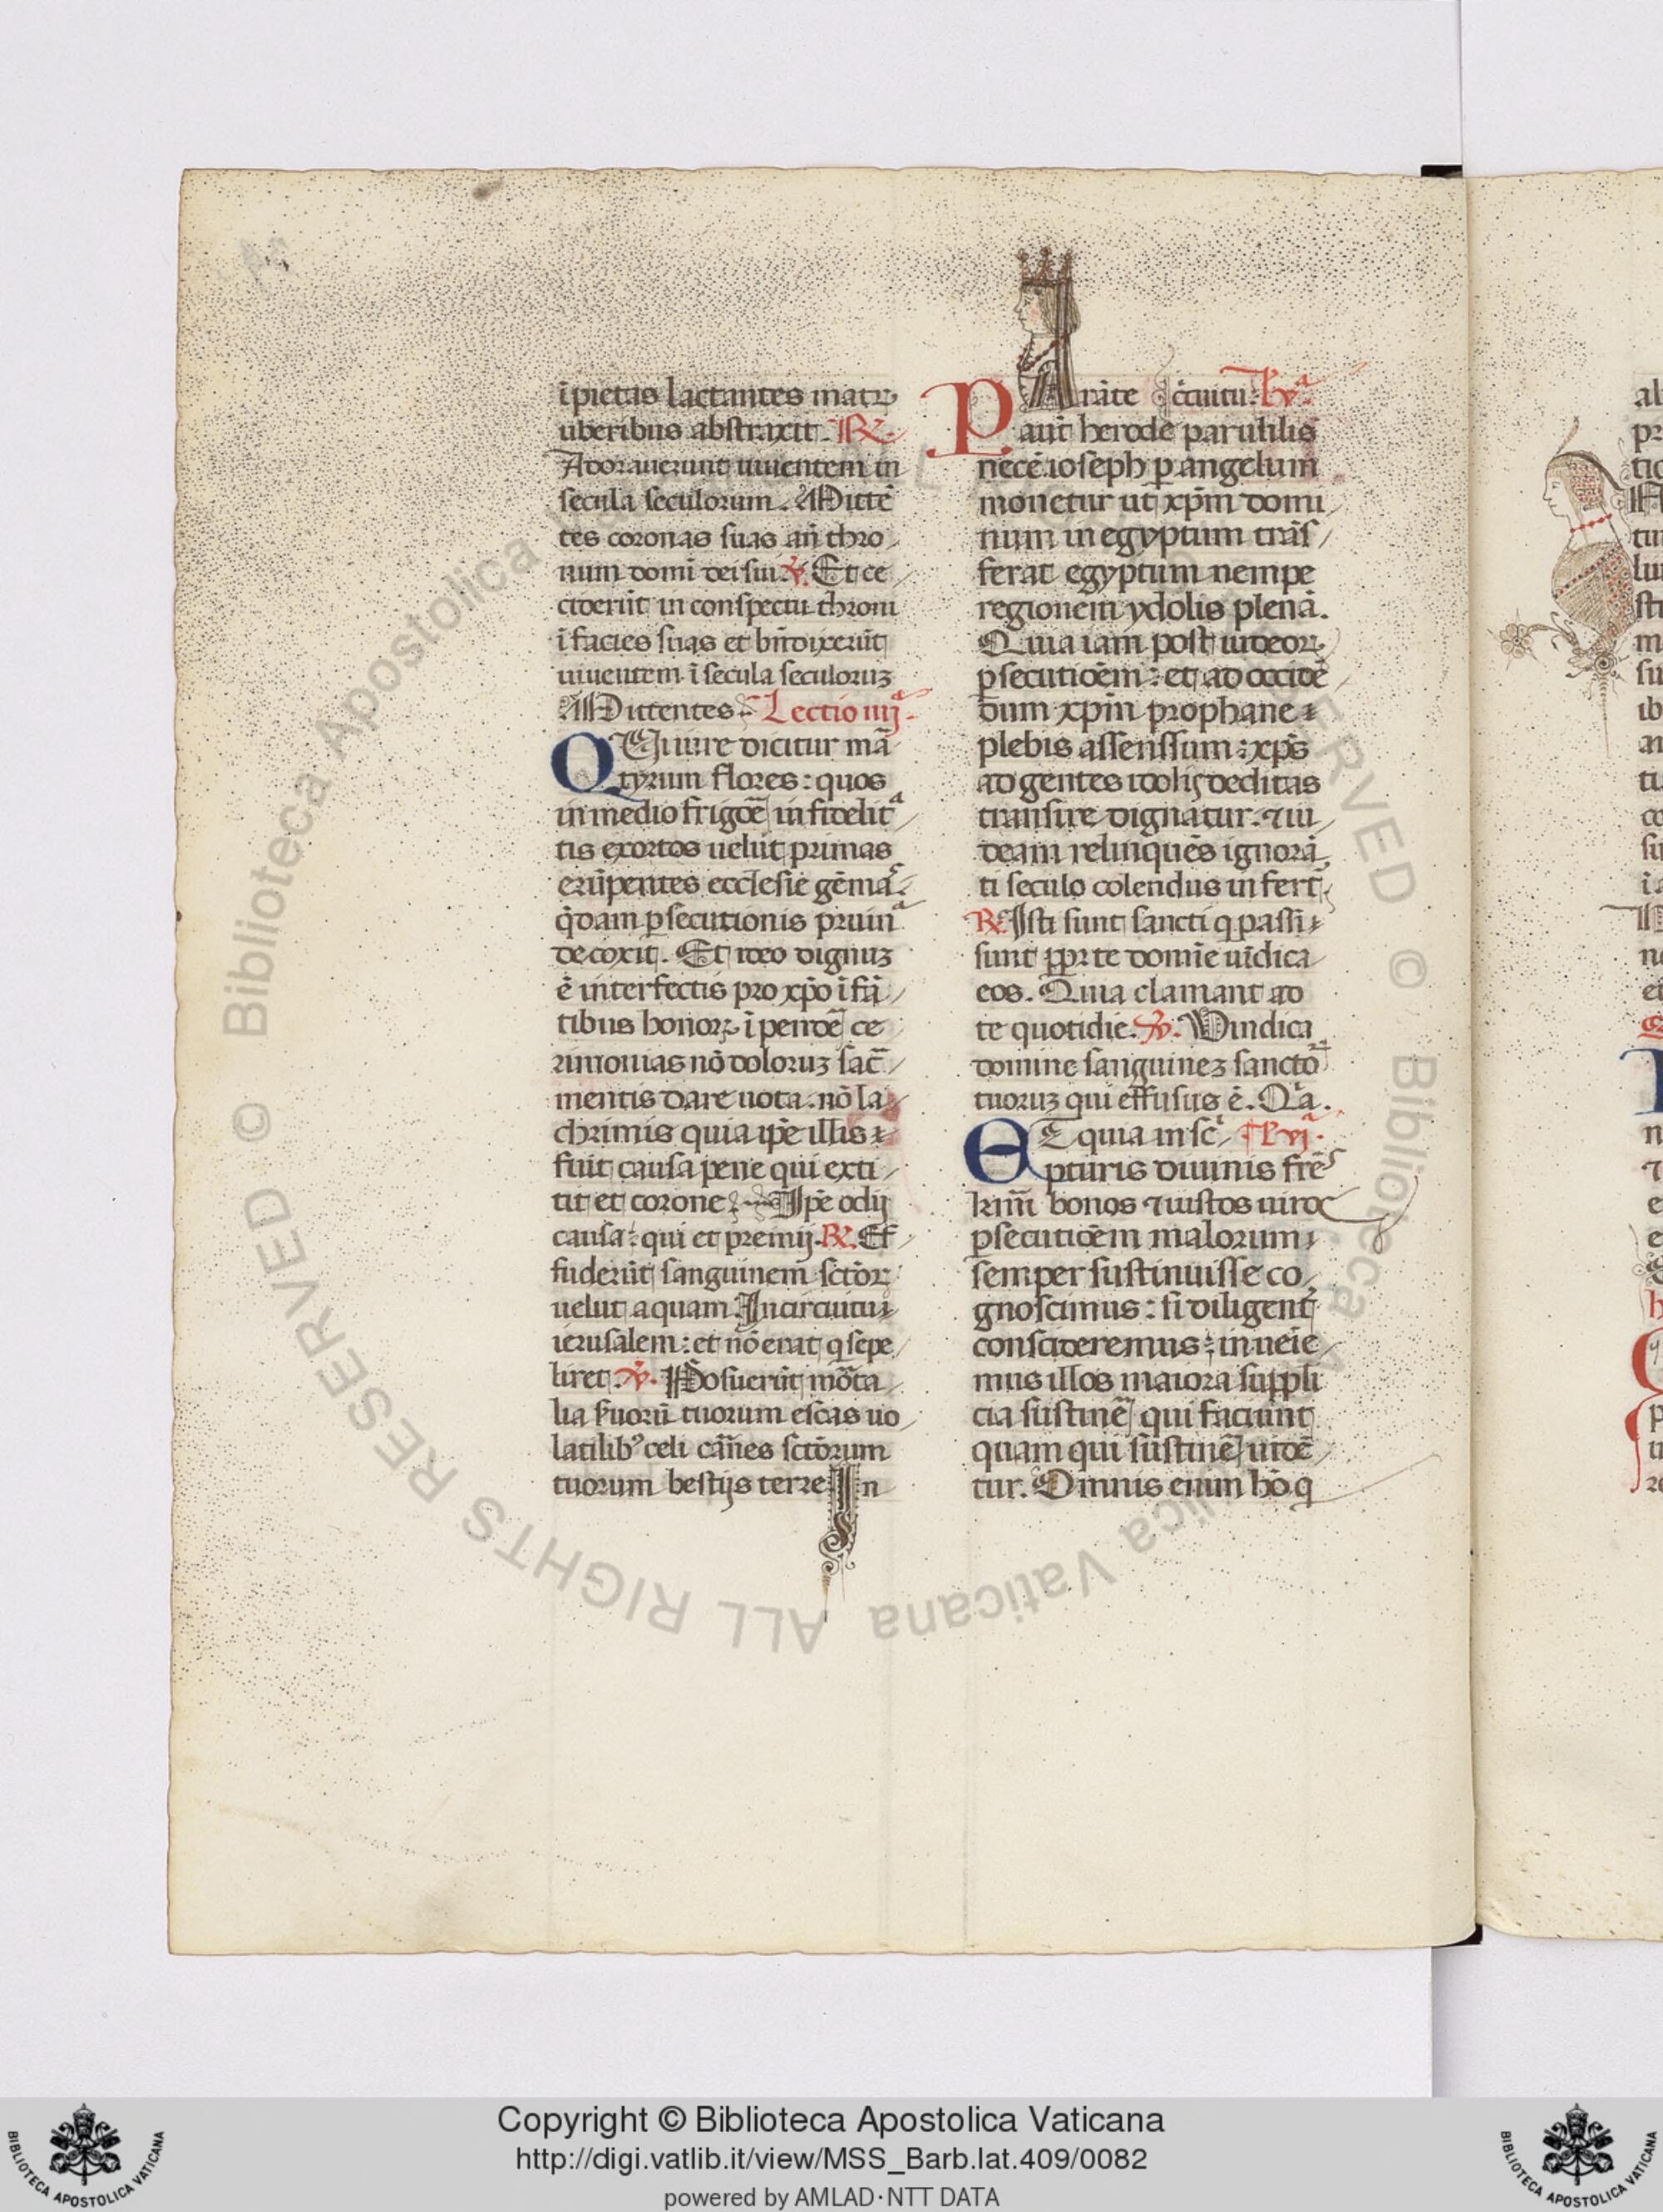 īpietas lactantes matꝝ
uberibus abstraxit. ℟.
Adorauerunt uiuentem in
secula seculorum. Mittē
tes coronas suas an̄ thro
num domī dei sui ℣. Et ce
ciderūt in conspectu throni
ī facies suas et bn̄dixerūt
uiuentem ī secula seculoruꝫ
Mittentes. Lectio iiijᵃ.
QUi iure dicitur ma᷑
tyrum flores: quos
in medio frigoē infidelitᵃ
tis exortos uelut primas
erūpentes ecclesie gēmaˢ
q̇dam ꝑsecutionis pruinᵃ
decoxit. Et ideo dignuꝫ
ē interfectis pro xp̄o īfā
tibus honoꝝ īpendē ce
rimonias nō doloruꝫ sac̄
mentis dare uota. nō la
chrimis quia ip̄e illis
fuit causa pene qui exti
tit et corone Ip̄e odij
causa: qui et premij. ℟. Ef
fuderūt sanguinem sctōꝝ
uelut aquam. In circuitu
ierusalem: et nō erat q sepe
liret. ℣. Posuerūt mōta
lia suorū tuorum escas uo
latilibꝰ celi carnes sctōrum
tuorum bestijs terre In
Parāte ccuitu. L. vᵃ.
aut̄ herode parulilis
necē ioseph ꝑ angelum
monetur ut xp̄m domi
num in egyptum trās
ferat egyptum nempe
regionem ydolis plenā.
Quia iam post iudeoꝝ
ꝑsecutiōem: et ad occidē
dum xp̄m prophane
plebis assenssum: xp̄s
ad gentes idolis deditas
transire dignatur. ⁊ iu
deam relinquēs ignorā
ti seculo colendus infert᷑
℟. Isti sunt sancti q passi
sunt ꝓpr te domīe uīdica
eos. Quia clamant ad
te quotidie. ℣. Vindica
domine sanguineꝫ sanctoꝝ
tuoruꝫ qui effusus ē. Qᵃ.
ET quia in sc̄ L. vjᵃ.
pturis diuinis frēˢ
krm̄i bonos ⁊ iustos uiros
ꝑsecutiōem malorum
semper sustinuisse co
gnoscimus: si diligent᷑
consideremus: inueīe
mus illos maiora suppli
cia sustinē qui faciunt
quam qui sustinē uidē
tur. Omnis enim hō q
Copyright © Biblioteca Apostolica Vaticana
http://digi.vatlib.it/view/MSS_Barb.lat.409/0082
powered by AMLAD·NTT DATA